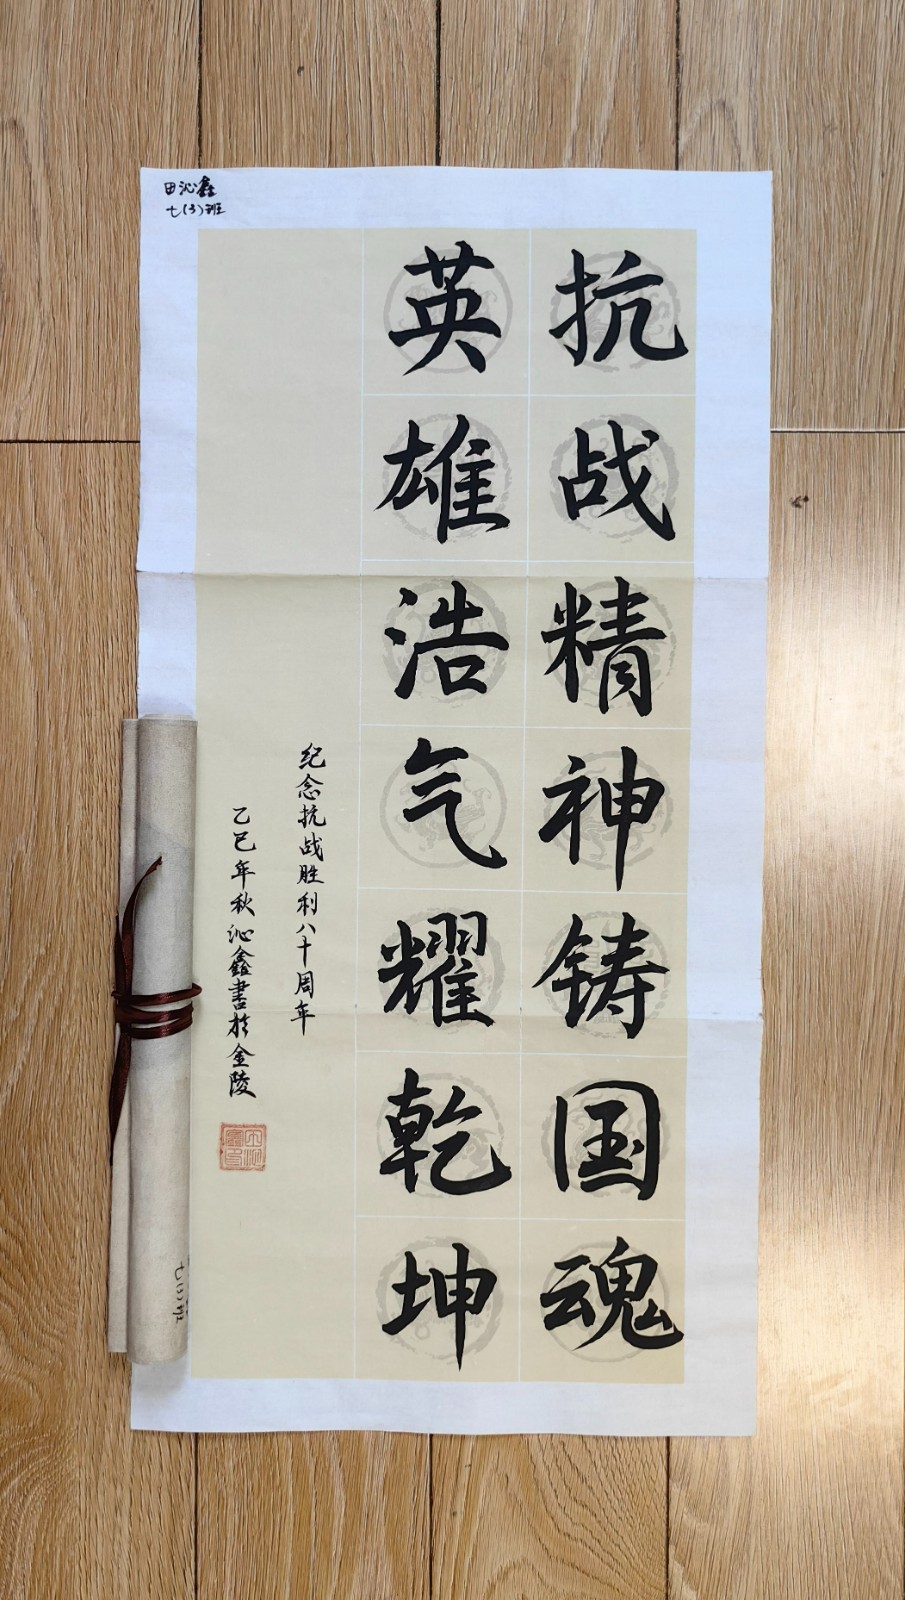 抗战精神铸国魂
英雄浩气耀乾坤
纪念抗战胜利八十周年
乙巳年秋沁鑫書於金陵
田沁鑫
七(3)班